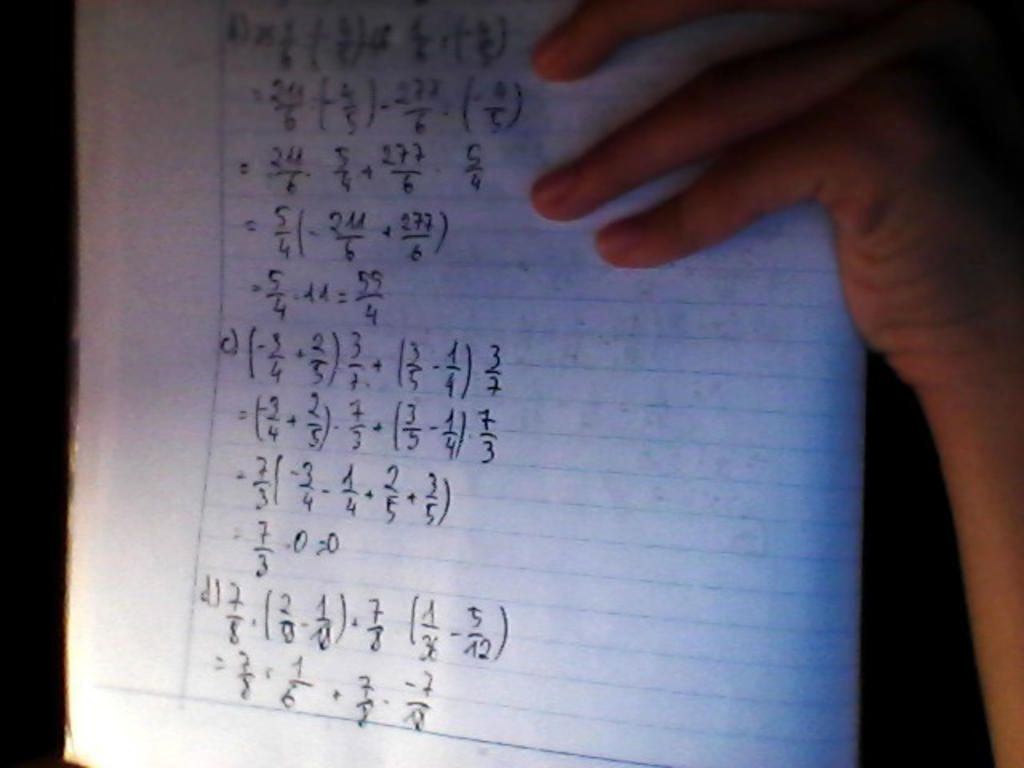 = 211/6 · (-4/5) - 277/6 · (-4/5)
= 211/6 · 5/4 + 277/6 · 5/4
= 5/4 (- 211/6 + 277/6)
= 5/4 · 11 = 55/4
c) (-3/4 + 2/5) · 3/7 + (3/5 - 1/4) · 3/7
= (-3/4 + 2/5) · 7/3 + (3/5 - 1/4) · 7/3
= 7/3 (-3/4 - 1/4 + 2/5 + 3/5)
= 7/3 · 0 = 0
d) 7/8 : (2/9 - 1/18) + 7/8 (1/36 - 5/12)
= 7/8 : 1/6 + 7/8 · -7/18